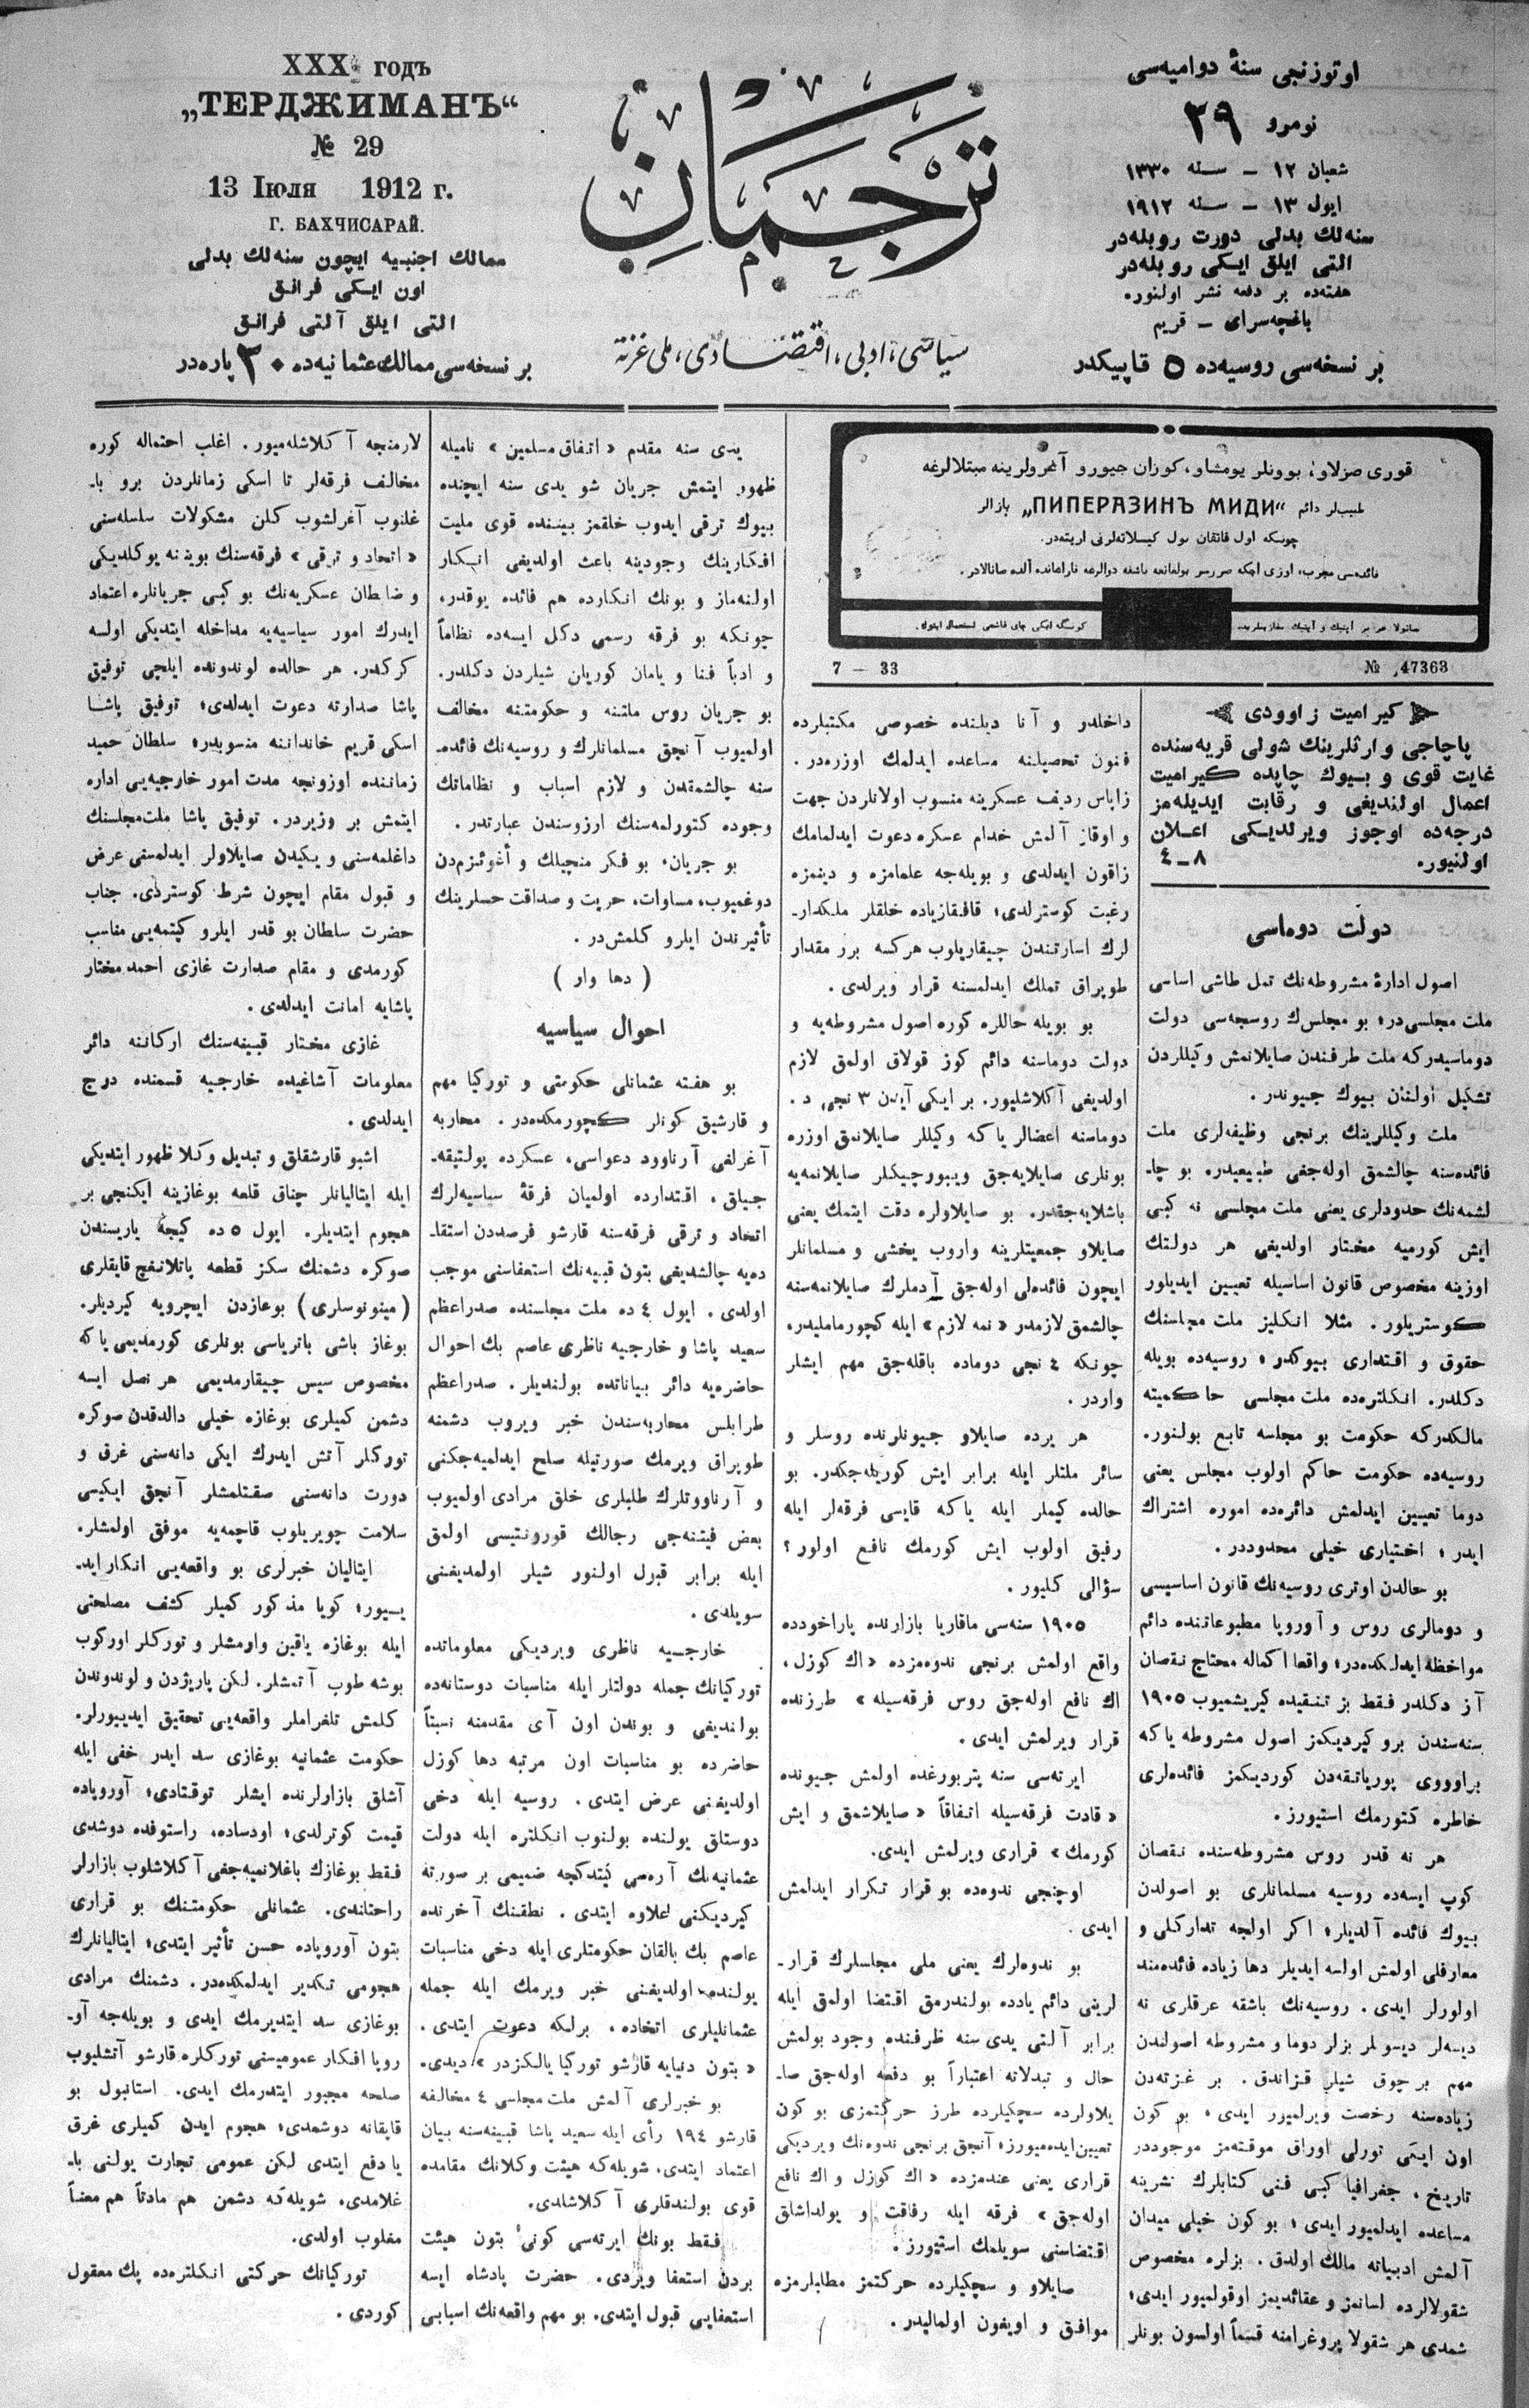 XXX годъ
„ТЕРДЖИМАНЪ“
№ 29
13 Іюля 1912 г.
Г. БАХЧИСАРАЙ.
ممالك اجنبیه ایچون سنه‌لك بدلی
اون ایكی فرانق
التی ایلق آلتی فرانق
بر نسخه‌سی ممالك عثمانیه‌ده ۳۰ پاره‌در
ترجمان
سیاسی، ادبی، اقتصادی، ملی غزته
اوتوزنجی سنهٔ دوامیه‌سی
نومرو ۲۹
شعبان ۱۲ — سنه ۱۳۳۰
ایول ۱۳ — سنه ۱۹۱۲
سنه‌لك بدلی دورت روبله‌در
التی ایلق ایكی روبله‌در
هفته‌ده بر دفعه نشر اولنور.
باغچه‌سرای — قریم
بر نسخه‌سی روسیه‌ده ۵ قاپیكدر
طبیب‌لر دائم „ПИПЕРАЗИНЪ МИДИ“ یازالر
7 — 33
№ 47363
كیرامیت زاوودی
پاچاجی وارثلرینك شولی قریه‌سنده
غایت قوی و بیوك چاپده كیرامیت
اعمال اولندیغی و رقابت ایدیله‌مز
درجه‌ده اوجوز ویرلدیكی اعلان
اولنیور. ۸—٤
دولت دوماسی
اصول ادارهٔ مشروطه‌نك تمل طاشی اساسی
ملت مجلسی‌در؛ بو مجلس‌ك روسجه‌سی دولت
دوماسیدركه ملت طرفندن صایلانمش وكیللردن
تشكیل اولنان بیوك جیوندر.
ملت وكیللرینك برنجی وظیفه‌لری ملت
فائده‌سنه چالشمق اوله‌جغی طبیعیدر، بو چا-
لشمه‌نك حدودلری یعنی ملت مجلسی نه كبی
ایش كورمیه مختار اولدیغی هر دولتك
اوزینه مخصوص قانون اساسیله تعیین ایدیلور
كوستریلور. مثلا انكلیز ملت مجلسنك
حقوق و اقتداری بیوكدر؛ روسیه‌ده بویله
دكلدر. انكلتره‌ده ملت مجلسی حاكمیته
مالكدركه حكومت بو مجلسه تابع بولنور.
روسیه‌ده حكومت حاكم اولوب مجلس یعنی
دوما تعیین ایدلمش دائره‌ده اموره اشتراك
ایدر؛ اختیاری خیلی محدوددر.
بو حالدن اوتری روسیه‌نك قانون اساسیسی
و دومالری روس و آوروپا مطبوعاتنده دائم
مواخظه ایدلكده‌در؛ واقعا اكماله محتاج نقصان
آز دكلدر فقط بز تنقیده كیریشمیوب ۱۹۰٥
سنه‌سندن برو كیردیكمز اصول مشروطه یاكه
پوریاتقه‌دن كوردیكمز فائده‌لری
خاطره كتورمك استیورز.
هر نه قدر روس مشروطه‌سنده نقصان
كوپ ایسه‌ده روسیه مسلمانلری بو اصولدن
بیوك فائده آلدیلر؛ اكر اولجه تداركلی و
معارفلی اولمش اولسه ایدیلر دها زیاده فائده‌مند
اولورلر ایدی. روسیه‌نك باشقه عرقلری نه
دیسه‌لر دیسولر بزلر دوما و مشروطه اصولندن
مهم برچوق شیلر قزاندق. بر غزته‌دن
زیاده‌سنه رخصت ویرلمیور ایدی، بو كون
اون ایكی تورلی اوراق موقته‌مز موجوددر
تاریخ، جغرافیا كبی فنی كتابلرك نشرینه
مساعده ایدلمیور ایدی؛ بو كون خیلی میدان
آلمش ادبیاته مالك اولدق. بزلره مخصوص
شقولالرده لسانمز و عقائدیمز اوقولمیور ایدی؛
شمدی هر شقولا پروغرامنه قسماً اولسون بونلر
داخلدر و آنا دیلنده خصوصی مكتبلرده
فنون تحصیلنه مساعده ایدلمك اوزره‌در.
زاپاس ردیف عسكرینه منسوب اولانلردن جهت
و اوقاز آلمش خدام عسكره دعوت ایدلمامك
زاقون ایدلدی و بویله‌جه علمامزه و دینمزه
رغبت كوسترلدی؛ قافقازیاده خلقلر ملكدار-
لرك اسارتندن چیقاریلوب هركسه برر مقدار
طوپراق تملك ایدلمسنه قرار ویرلدی.
بو بویله حاللره كوره اصول مشروطه‌یه و
دولت دوماسنه دائم كوز قولاق اولمق لازم
اولدیغی آكلاشلیور. بر ایكی آیدن ۳ نجی د.
دوماسنه اعضالر یاكه وكیللر صایلانمق اوزره
بونلری صایلایه‌جق ویبورچیكلر صایلانمه‌یه
باشلایه‌جقدر. بو صایلاولره دقت ایتمك یعنی
صایلاو جمعیتلرینه واروب یخشی و مسلمانلر
ایچون فائده‌لی اوله‌جق آدملرك صایلانمه‌سنه
چالشمق لازمدر «نمه لازم» ایله كچورماملیدر،
چونكه ٤ نجی دوماده باقله‌جق مهم ایشلر
واردر.
هر یرده صایلاو جیونلرنده روسلر و
سائر ملتلر ایله برابر ایش كوریله‌جكدر. بو
حالده كیملر ایله یاكه قایسی فرقه‌لر ایله
رفیق اولوب ایش كورمك نافع اولور؟
سؤالی كلیور.
۱۹۰٥ سنه‌سی ماقاریا بازارنده پاراخودده
واقع اولمش برنجی ندوه‌مزده «اك كوزل،
اك نافع اوله‌جق روس فرقه‌سیله» طرزنده
قرار ویرلمش ایدی.
ایرته‌سی سنه پتربورغده اولمش جیونده
«قادت فرقه‌سیله اتفاقاً «صایلاشمق و ایش
كورمك» قراری ویرلمش ایدی.
اوچنجی ندوه‌ده بو قرار تكرار ایدلمش
ایدی.
بو ندوه‌لرك یعنی ملی مجلسلرك قرار-
لرینی دائم یادده بولندرمق اقتضا اولمق ایله
برابر آلتی یدی سنه ظرفنده وجود بولمش
حال و تبدلاته اعتباراً بو دفعه اوله‌جق صا-
یلاولرده سچكیلرده طرز حركتمزی بو كون
تعیین ایده‌میورز؛ آنجق برنجی ندوه‌نك ویردیكی
قراری یعنی عندمزده «اك كوزل و اك نافع
اوله‌جق» فرقه ایله رفاقت و یولداشلق
اقتضاسنی سویلمك استیورز.
صایلاو و سچكیلرده حركتمز مطابلرمزه
موافق و اویغون اولمالیدر.
یدی سنه مقدم «اتفاق مسلمین» نامیله
ظهور ایتمش جریان شو یدی سنه ایچنده
بیوك ترقی ایدوب خلقمز بیننده قوی ملیت
افكارینك وجودینه باعث اولدیغی انكار
اولنه‌ماز و بونك انكارده هم فائده یوقدر،
چونكه بو فرقه رسمی دكل ایسه‌ده نظاماً
و ادباً فنا و یامان كوریان شیلردن دكلدر.
بو جریان روس ملتنه و حكومتنه مخالف
اولمیوب آنجق مسلمانلرك و روسیه‌نك فائده-
سنه چالشمقدن و لازم اسباب و نظاماتك
وجوده كتورلمه‌سنك ارزوسندن عبارتدر.
بو جریان، بو فكر منچیلك و أغوئیزم‌دن
دوغمیوب، مساوات، حریت و صداقت حسلرینك
تأثیرندن ایلرو كلمش‌در.
( دها وار )
احوال سیاسیه
بو هفته عثمانلی حكومتی و توركیا مهم
و قارشیق كونلر كچورمكده‌در. محاربه
آغرلغی آرناوود دعواسی، عسكرده پولتیقه-
جیلق، اقتدارده اولمیان فرقهٔ سیاسیه‌لرك
اتحاد و ترقی فرقه‌سنه قارشو فرصددن استفا-
ده‌یه چالشدیغی بتون قبینه‌نك استعفاسنی موجب
اولدی. ایول ٤ ده ملت مجلسنده صدراعظم
سعید پاشا و خارجیه ناظری عاصم بك احوال
حاضره‌یه دائر بیاناتده بولندیلر. صدراعظم
طرابلس محاربه‌سندن خبر ویروب دشمنه
طوپراق ویرمك صورتیله صلح ایدلمیه‌جكنی
و آرناووتلرك طلبلری خلق مرادی اولمیوب
بعض فیتنه‌جی رجالك قورونتیسی اولمق
ایله برابر قبول اولنور شیلر اولمدیغنی
سویلدی.
خارجیه ناظری ویردیكی معلوماتده
توركیانك جمله دولتلر ایله مناسبات دوستانه‌ده
بولندیغی و بوندن اون آی مقدمنه نسبتاً
حاضرده بو مناسبات اون مرتبه دها كوزل
اولدیغنی عرض ایتدی. روسیه ایله دخی
دوستلق یولنده بولنوب انكلتره ایله دولت
عثمانیه‌نك آره‌سی كیتدكجه ضمیمی بر صورته
كیردیكنی علاوه ایتدی. نطقنك آخرنده
عاصم بك بالقان حكومتلری ایله دخی مناسبات
یولنده اولدیغنی خبر ویرمك ایله جمله
عثمانلیلری اتحاده، برلكه دعوت ایتدی.
«بتون دنیایه قارشو توركیا یالكزدر» دیدی.
بو خبرلری آلمش ملت مجلسی ٤ مخالفه
قارشو ۱۹٤ رأی ایله سعید پاشا قبینه‌سنه بیان
اعتماد ایتدی، شویله‌كه هیئت وكلانك مقامده
قوی بولندقلری آكلاشلدی.
فقط بونك ایرته‌سی كونی بتون هیئت
بردن استعفا ویردی. حضرت پادشاه ایسه
استعفایی قبول ایتدی، بو مهم واقعه‌نك اسبابی
لارمنجه آكلاشله‌میور. اغلب احتماله كوره
مخالف فرقه‌لر تا اسكی زمانلردن برو با-
غلنوب آغرلشوب كلن مشكولات سلسله‌سنی
«اتحاد و ترقی» فرقه‌سنك بویننه یوكلدیكی
و ضابطان عسكریه‌نك بو كبی جریانلره اعتماد
ایدرك امور سیاسیه‌یه مداخله ایتدیكی اولسه
كركدر. هر حالده لوندونده ایلچی توفیق
پاشا صدارته دعوت ایدلدی؛ توفیق پاشا
اسكی قریم خاندانینه منسوبدر؛ سلطان حمید
زماننده اوزونجه مدت امور خارجیه‌یی اداره
ایتمش بر وزیردر. توفیق پاشا ملت‌مجلسنك
داغلمه‌سنی و یكیدن صایلاولر ایدلمسنی عرض
و قبول مقام ایچون شرط كوستردی. جناب
حضرت سلطان بو قدر ایلرو كیتمه‌یی مناسب
كورمدی و مقام صدارت غازی احمد مختار
پاشایه امانت ایدلدی.
غازی مختار قبینه‌سنك اركاننه دائر
معلومات آشاغیده خارجیه قسمنده درج
ایدلدی.
اشبو قارشقلق و تبدیل وكلا ظهور ایتدیكی
ایله ایتالیانلر چناق قلعه بوغازینه ایكنجی بر
هجوم ایتدیلر. ایول ٥ ده كیجه یاریسندن
صوكره دشمنك سكز قطعه پاتلانغچ قایقلری
(مینونوسلری) بوغازدن ایچرویه كیردیلر.
بوغاز باشی باتریاسی بونلری كورمدیمی یاكه
مخصوص سیس چیقارمدیمی هر نصل ایسه
دشمن كمیلری بوغازه خیلی دالدقدن صوكره
توركلر آتش ایدرك ایكی دانه‌سنی غرق و
دورت دانه‌سنی صقتلمشلر آنجق ایكیسی
سلامت چویریلوب قاچمه‌یه موفق اولمشلر.
ایتالیان خبرلری بو واقعه‌یی انكار اید-
یسیور؛ كویا مذكور كمیلر كشف مصلحتی
ایله بوغازه یاقین وارمشلر و توركلر اوركوب
بوشه طوب آتمشلر. لكن پاریژدن و لوندوندن
كلمش تلغراملر واقعه‌یی تحقیق ایدییورلر.
حكومت عثمانیه بوغازی سد ایدر خفی ایله
آشلق بازارلرنده ایشلر توقتادی؛ آوروپاده
قیمت كوترلدی؛ اودساده، راستوفده دوشدی
فقط بوغازك باغلانمیه‌جغی آكلاشلوب بازارلر
راحتلندی. عثمانلی حكومتنك بو قراری
بتون آوروپاده حسن تأثیر ایتدی؛ ایتالیانلرك
هجومی تكدیر ایدلمكده‌در. دشمنك مرادی
بوغازی سد ایتدیرمك ایدی و بویله‌جه آو-
روپا افكار عمومیسنی توركلره قارشو آتشلیوب
صلحه مجبور ایتدرمك ایدی. استانبول بو
قاپقانه دوشمدی؛ هجوم ایدن كمیلری غرق
یا دفع ایتدی لكن عمومی تجارت یولنی با-
غلامدی، شویله‌كه دشمن هم مادتاً هم معناً
مغلوب اولدی.
توركیانك حركتی انكلتره‌ده پك معقول
كوردی.